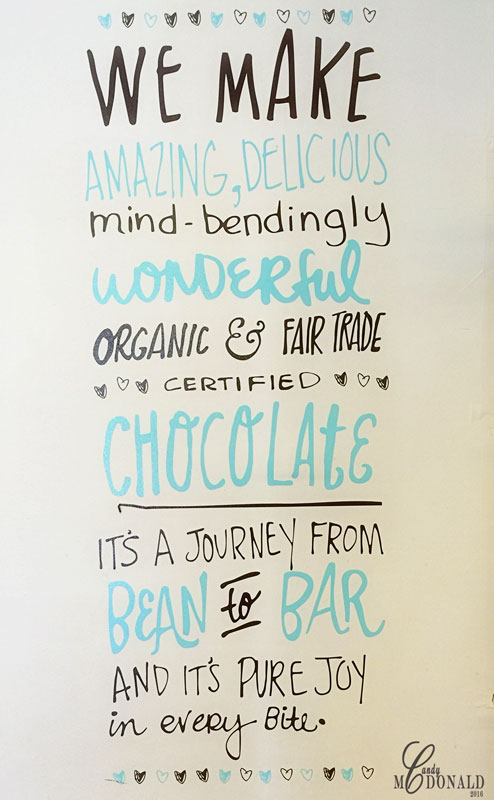 WE MAKE
AMAZING, DELICIOUS
mind-bendingly
wonderful
ORGANIC & FAIR TRADE
CERTIFIED
CHOCOLATE
IT'S A JOURNEY FROM
BEAN to BAR
AND IT'S PURE JOY
in every Bite.
Candy
McDONALD
2016